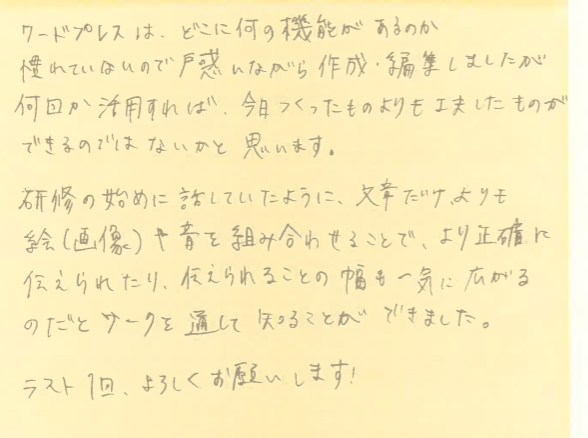 ワードプレスは、どこに何の機能があるのか
慣れていないので戸惑いながら作成・編集しましたが
何回か活用すれば、今日つくったものよりも工夫したものが
できるのではないかと思います。
研修の始めに話していたように、文章だけよりも
絵(画像)や音を組み合わせることで、より正確に
伝えられたり、伝えられることの幅も一気に広がる
のだとワークを通して知ることができました。
ラスト1回、よろしくお願いします!